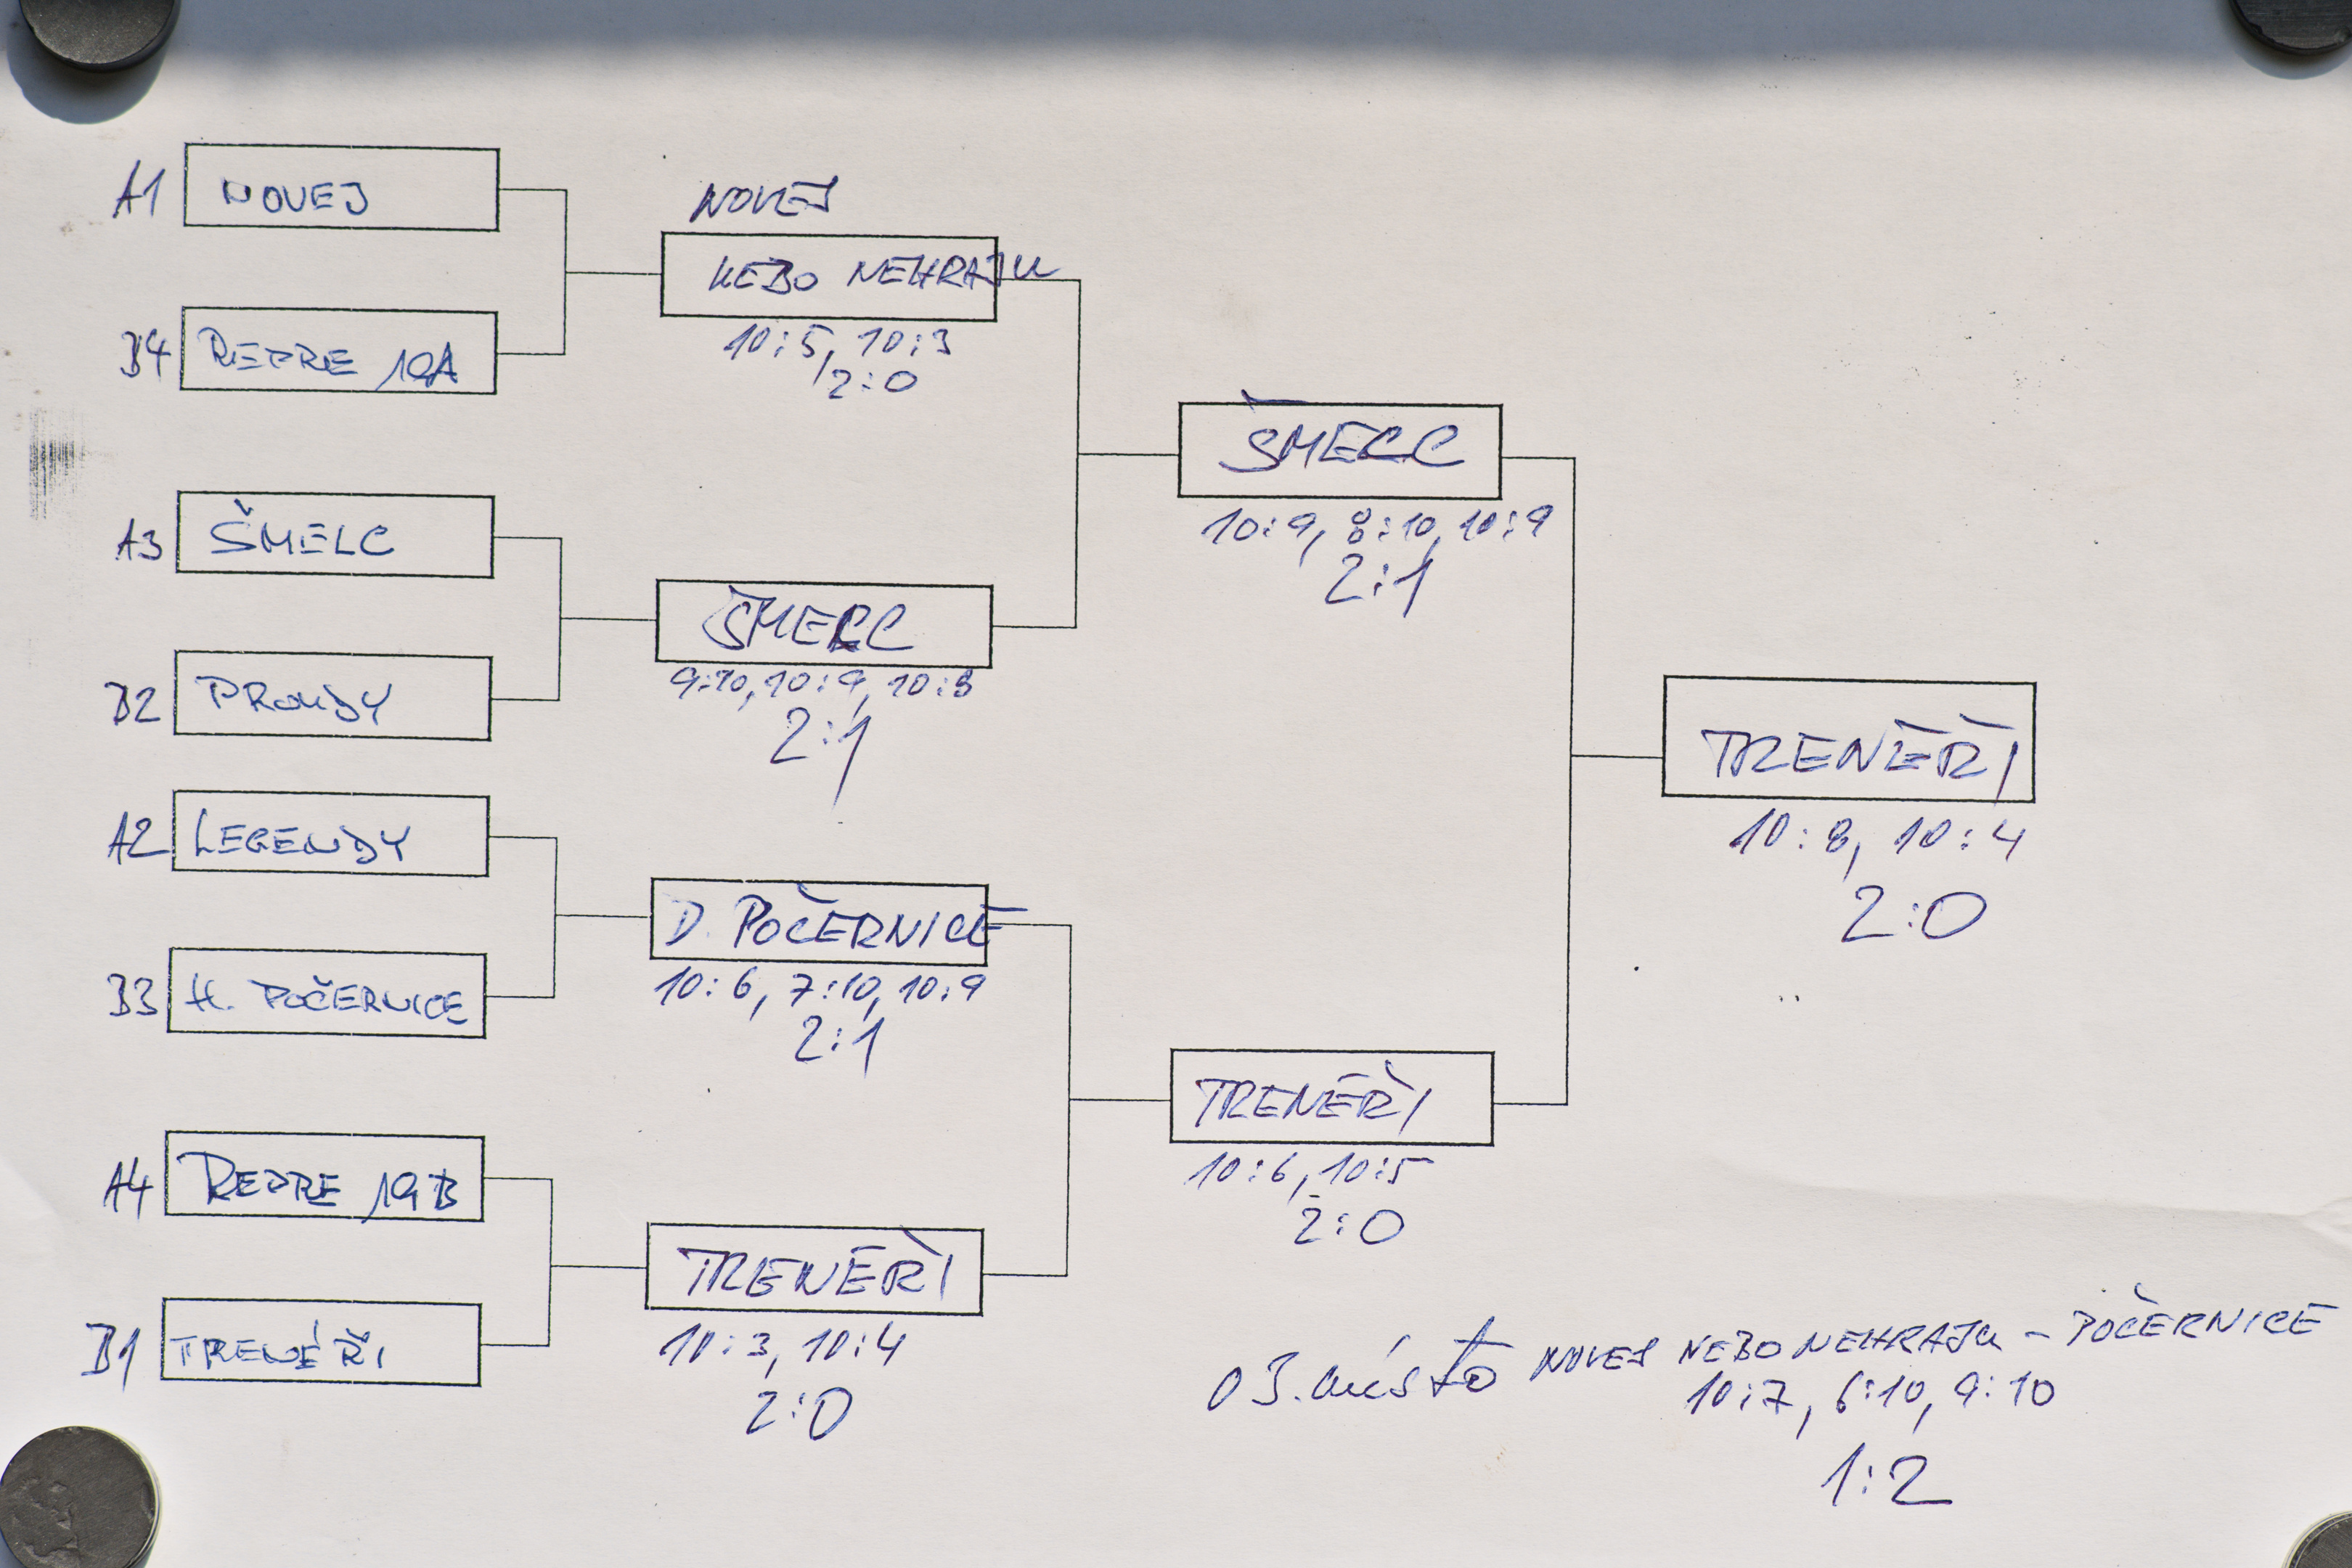 A1 NOVEJ
B4 REPRE 19A
A3 ŠMELC
B2 PROUDY
A2 LEGENDY
B3 H. POČERNICE
A4 REPRE 19B
B1 TRENÉŘI
NOVEJ
NEBO NEHRAJU
10:5, 10:3
2:0
ŠMELC
9:10, 10:9, 10:8
2:1
D. POČERNICE
10:6, 7:10, 10:9
2:1
TRENÉŘI
10:3, 10:4
2:0
ŠMELC
10:9, 8:10, 10:9
2:1
TRENÉŘI
10:6, 10:5
2:0
TRENÉŘI
10:8, 10:4
2:0
O 3. místo NOVEJ NEBO NEHRAJU - POČERNICE
10:7, 6:10, 9:10
1:2